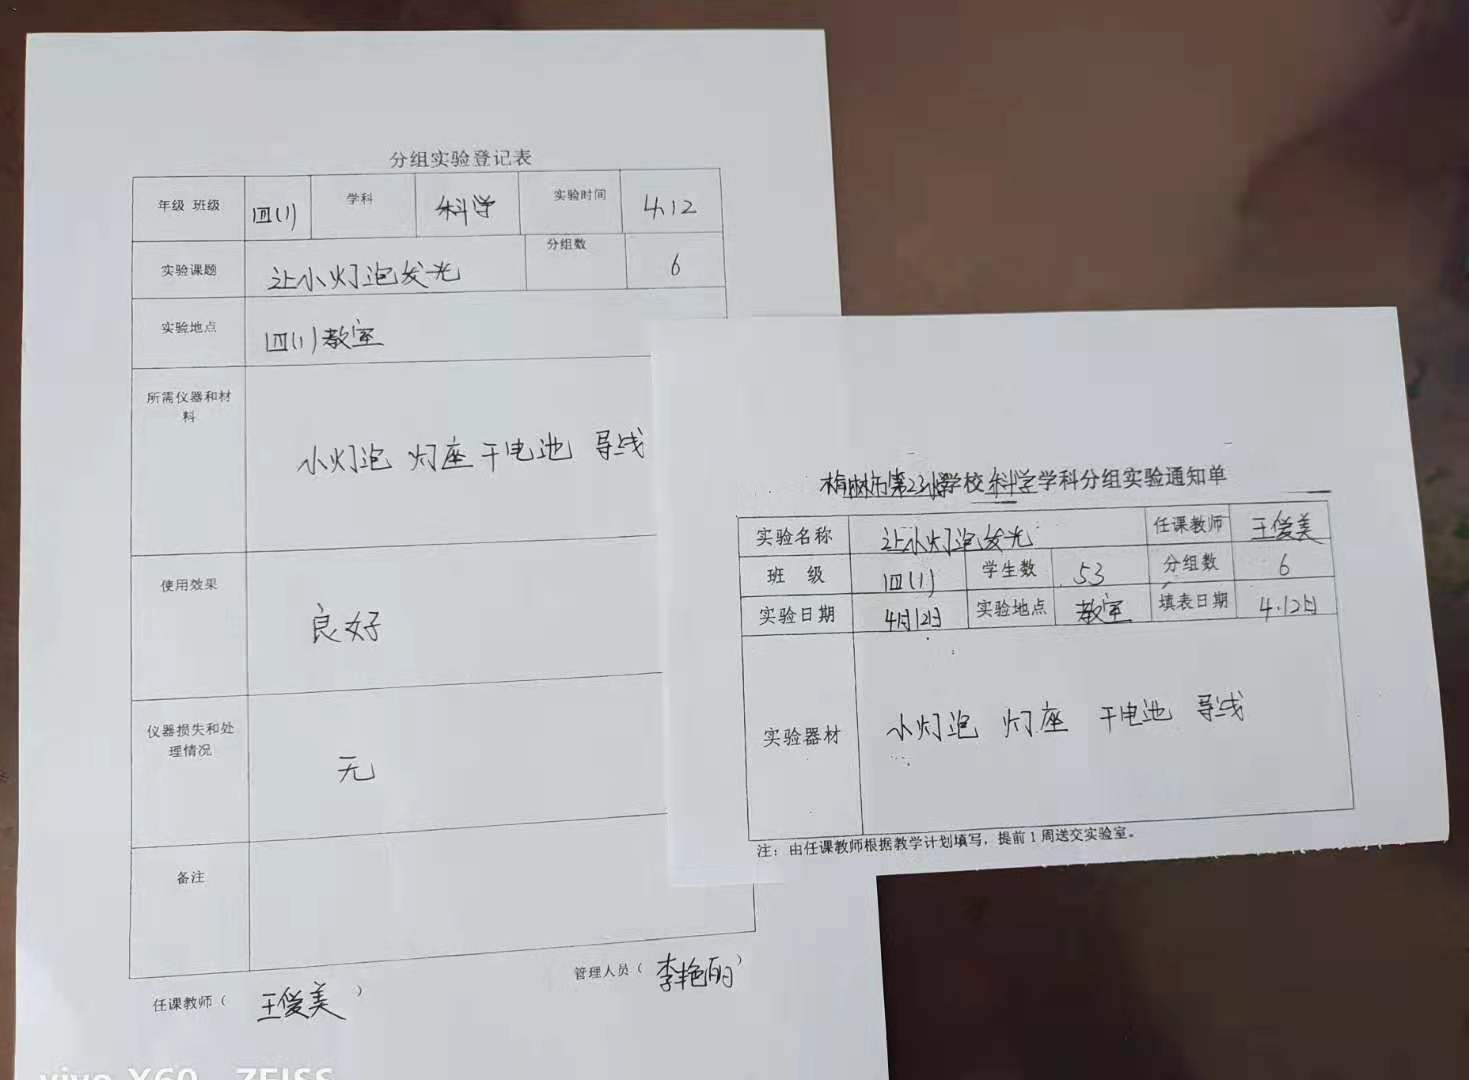 分组实验登记表
年级 班级 四(1) 学科 科学 实验时间 4.12
实验课题 让小灯泡发光 分组数 6
实验地点 四(1)教室
所需仪器和材料 小灯泡 灯座 干电池 导线
使用效果 良好
仪器损失和处理情况 无
备注
任课教师（ 王俊美 ） 管理人员（ 李艳丽 ）
第23小学学校科学学科分组实验通知单
实验名称 让小灯泡发光 任课教师 王俊美
班 级 四(1) 学生数 53 分组数 6
实验日期 4月12日 实验地点 教室 填表日期 4.12日
实验器材 小灯泡 灯座 干电池 导线
注：由任课教师根据教学计划填写，提前1周送交实验室。
vivo X60 ZEISS